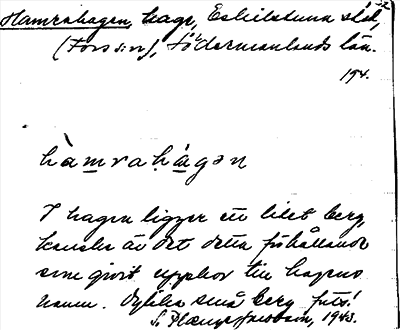 Hamrahagen, hage, Eskilstuna stad,
(Fors sn), Södermanlands län.
194.
hàmrahàgən
I hagen ligger ett litet berg,
kanske är det detta förhållande
som givit upphov till hagens
namn. Dylika små berg
S. 1943.